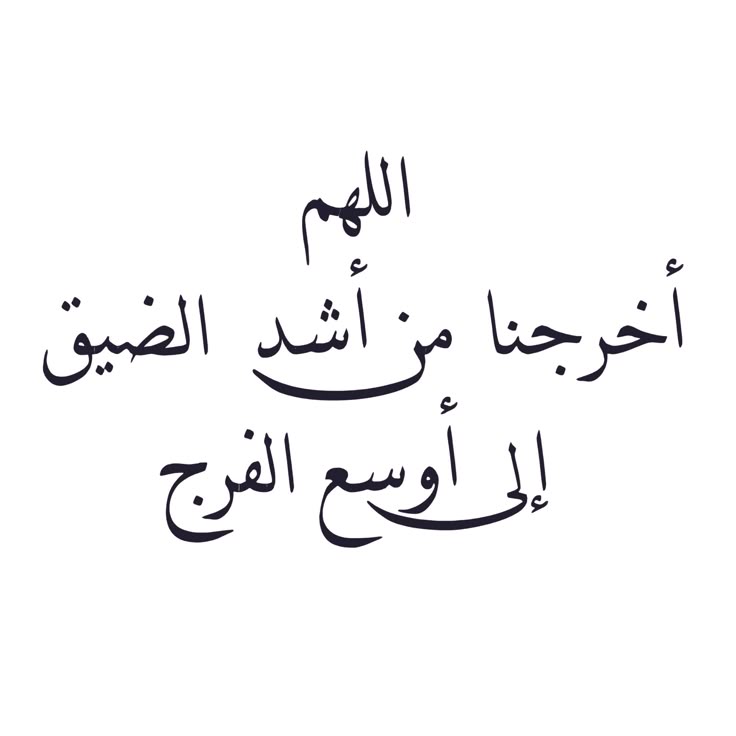 اللهم
أخرجنا من أشد الضيق
إلى أوسع الفرج